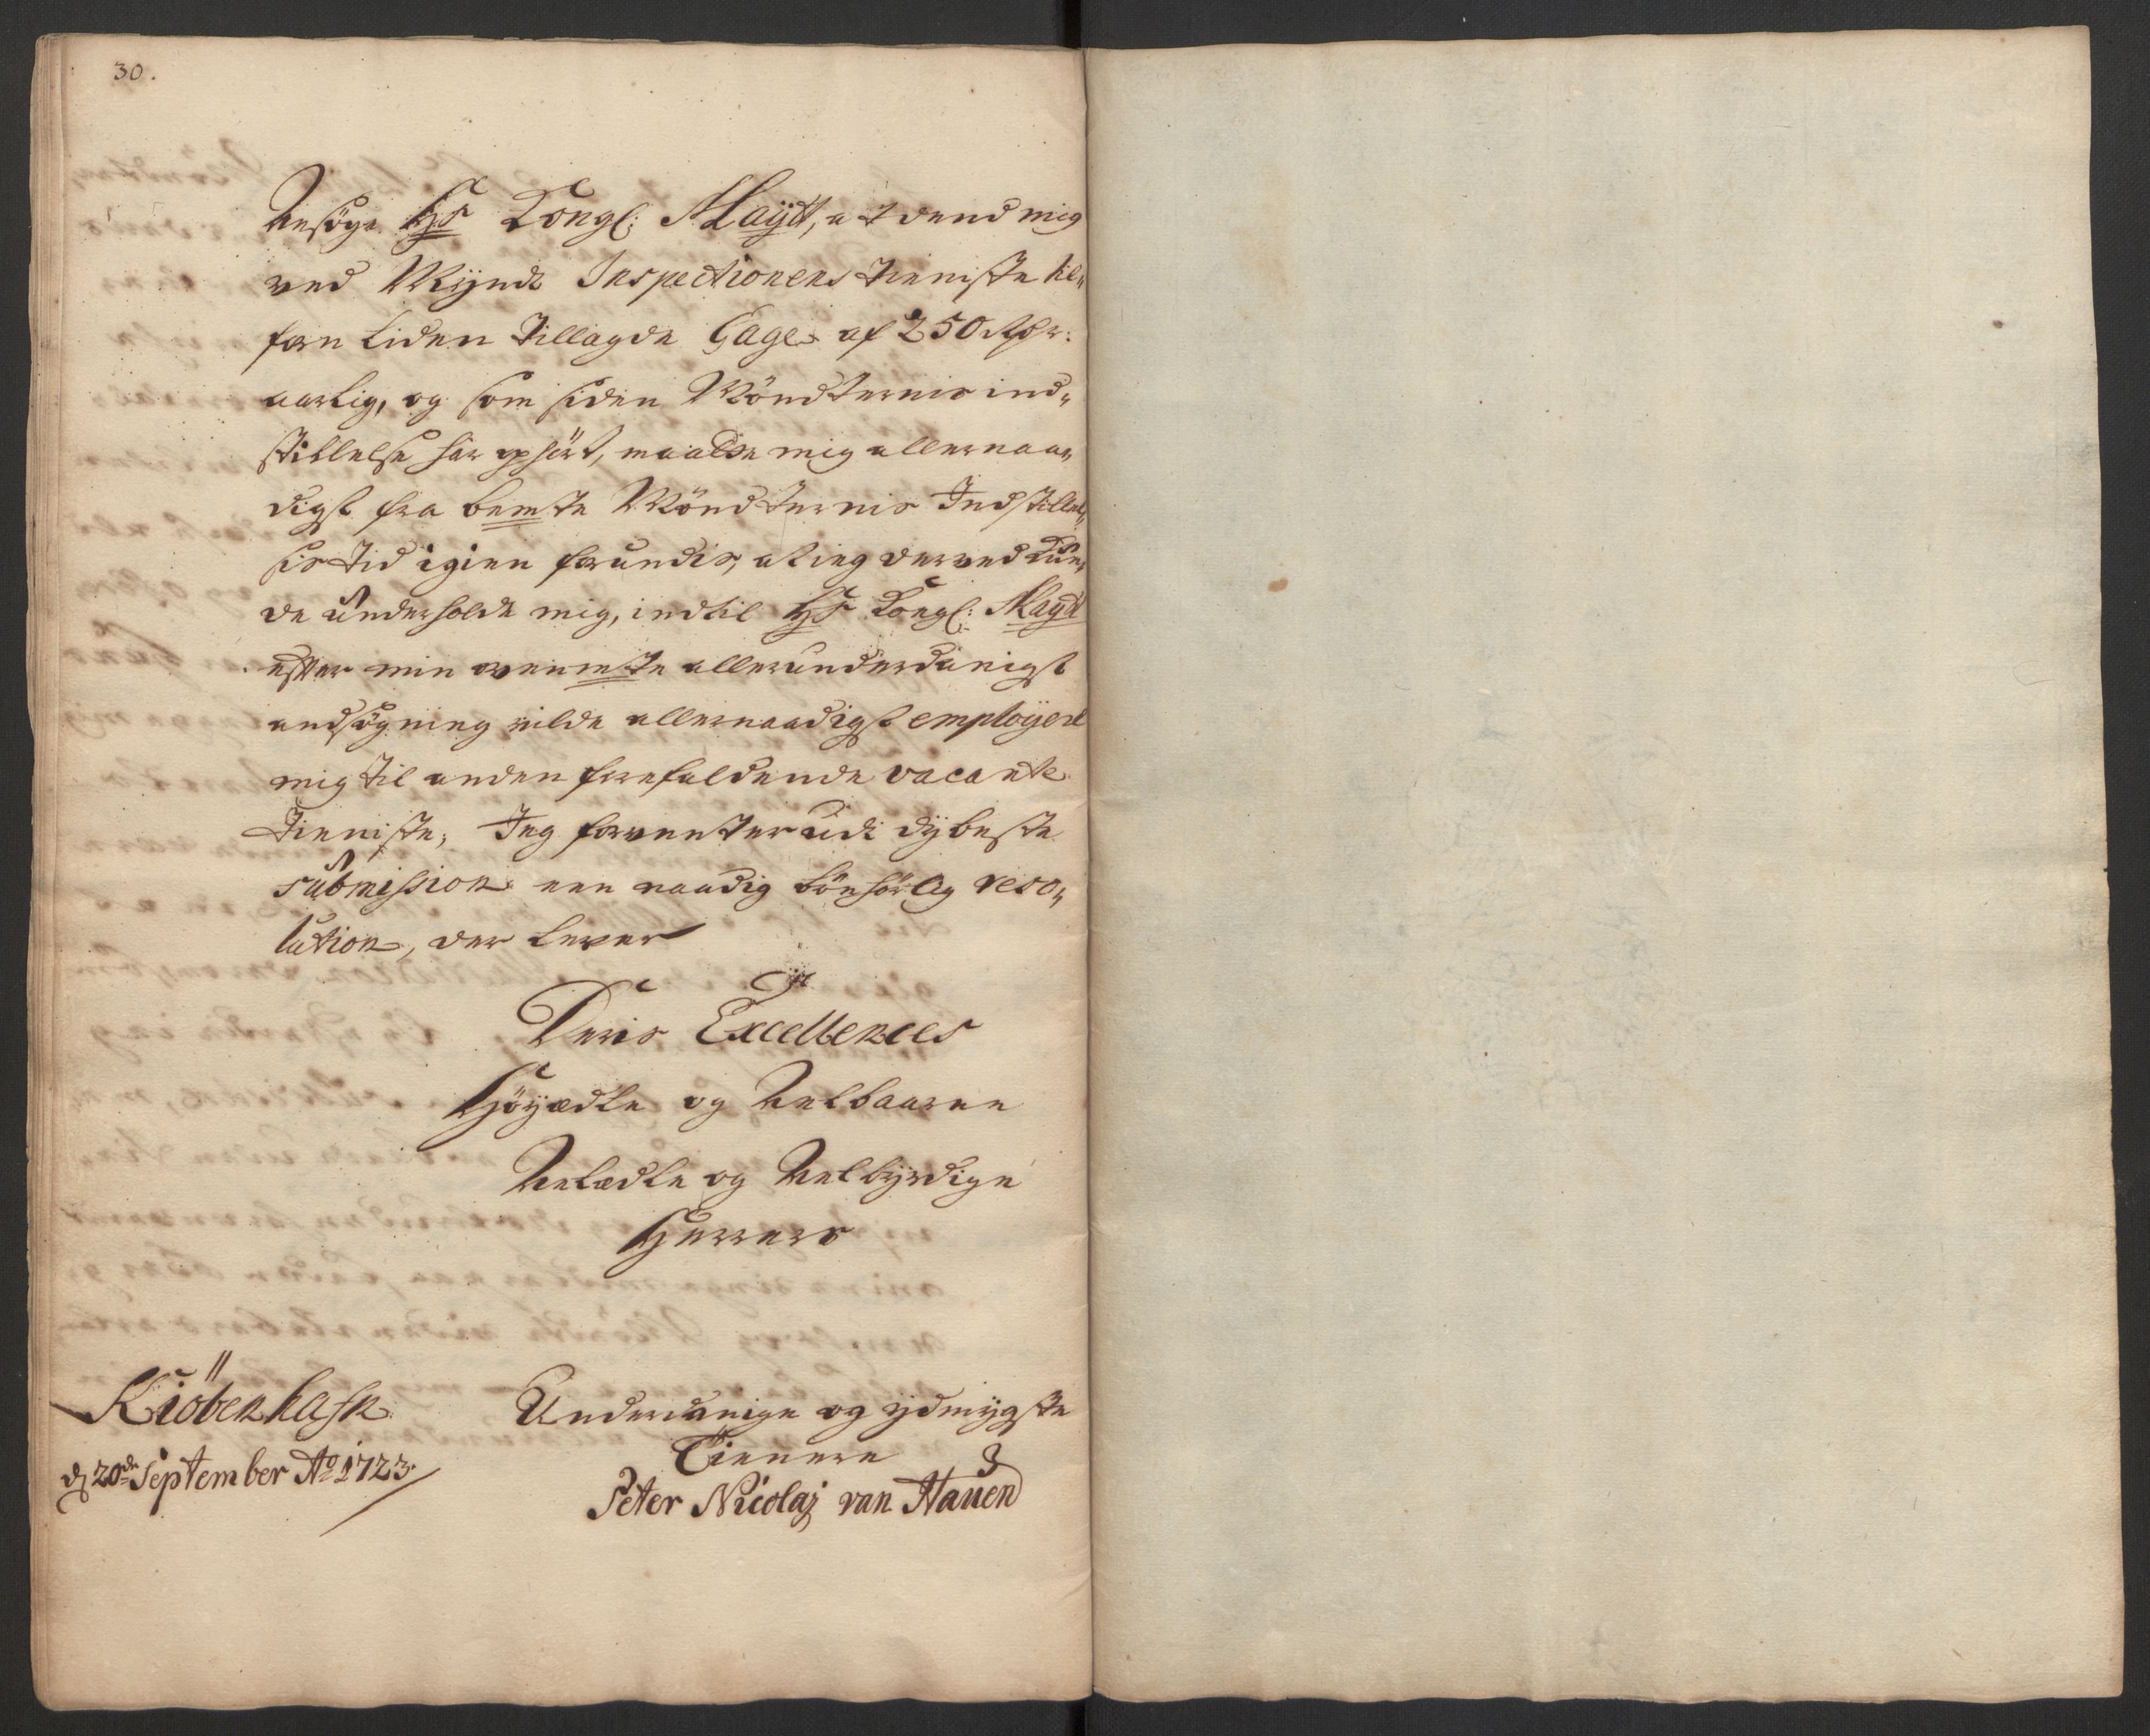 30.
Ansöge H:s Kongl: Maÿtt, at dend mig
ved Mÿndt Inspectionens tieniste til„
forn liden tillagde Gage af 250 Rdr:
aarlig, og som siden Mönternis ind„
stillelse har ophört, maatte mig allernaa„
digst fra bemte Mönternis Indstillel„
sis tid igien forundis, at ieg derved kun„
de underholde mig, indtil H:s Kongl: Maÿt
efter min ovenmte allerunderdanigst
ansögning vilde allernaadigst emploÿere
mig til anden forefaldende vacante
tieniste; Jeg forventer udi dÿbeste
submission een naadig bönhörlig reso„
lution, der lever
Deris Excellences
Höÿædle og Velbaarne
Velædle og Velbÿrdige
Herrers
Kiöbenhafn
d 20de September Ao 1723.
Underdanige og ÿdmÿgste
Tienere
Peter Nicolaj van Hauen